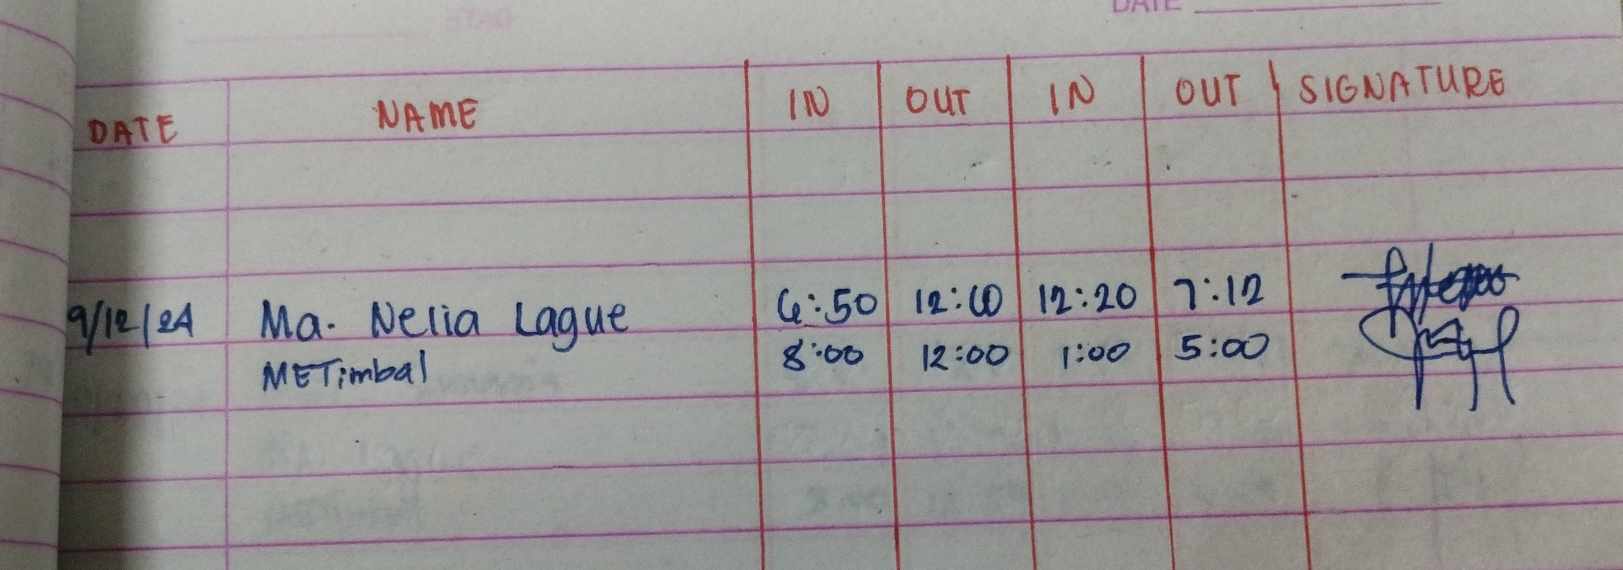 DATE
DATE NAME IN OUT IN OUT SIGNATURE
9/12/24 Ma. Nelia Lague 6:50 12:00 12:20 7:12
METimbal 8:00 12:00 1:00 5:00